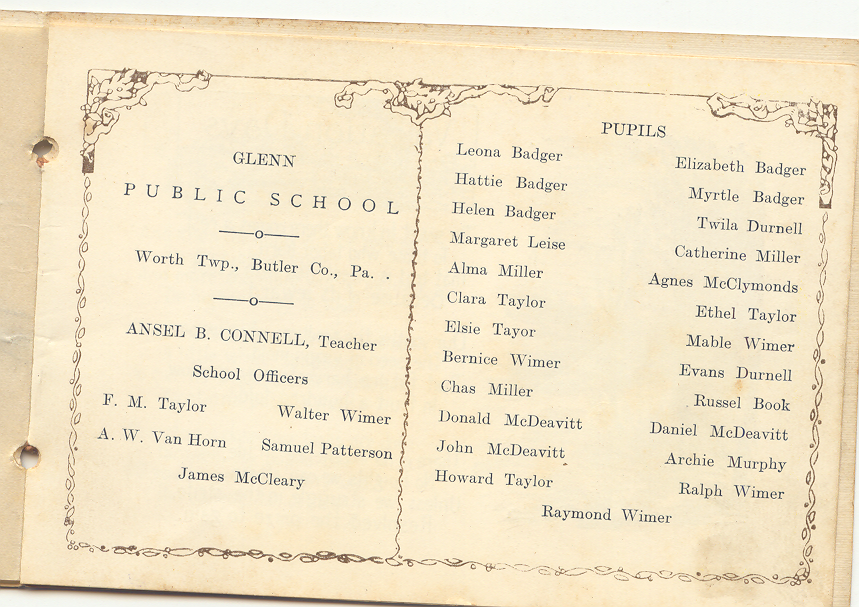 GLENN
PUBLIC SCHOOL
——o——
Worth Twp., Butler Co., Pa. .
——o——
ANSEL B. CONNELL, Teacher
School Officers
F. M. Taylor Walter Wimer
A. W. Van Horn Samuel Patterson
James McCleary
PUPILS
Leona Badger Elizabeth Badger
Hattie Badger Myrtle Badger
Helen Badger Twila Durnell
Margaret Leise Catherine Miller
Alma Miller Agnes McClymonds
Clara Taylor Ethel Taylor
Elsie Tayor Mable Wimer
Bernice Wimer Evans Durnell
Chas Miller Russel Book
Donald McDeavitt Daniel McDeavitt
John McDeavitt Archie Murphy
Howard Taylor Ralph Wimer
Raymond Wimer